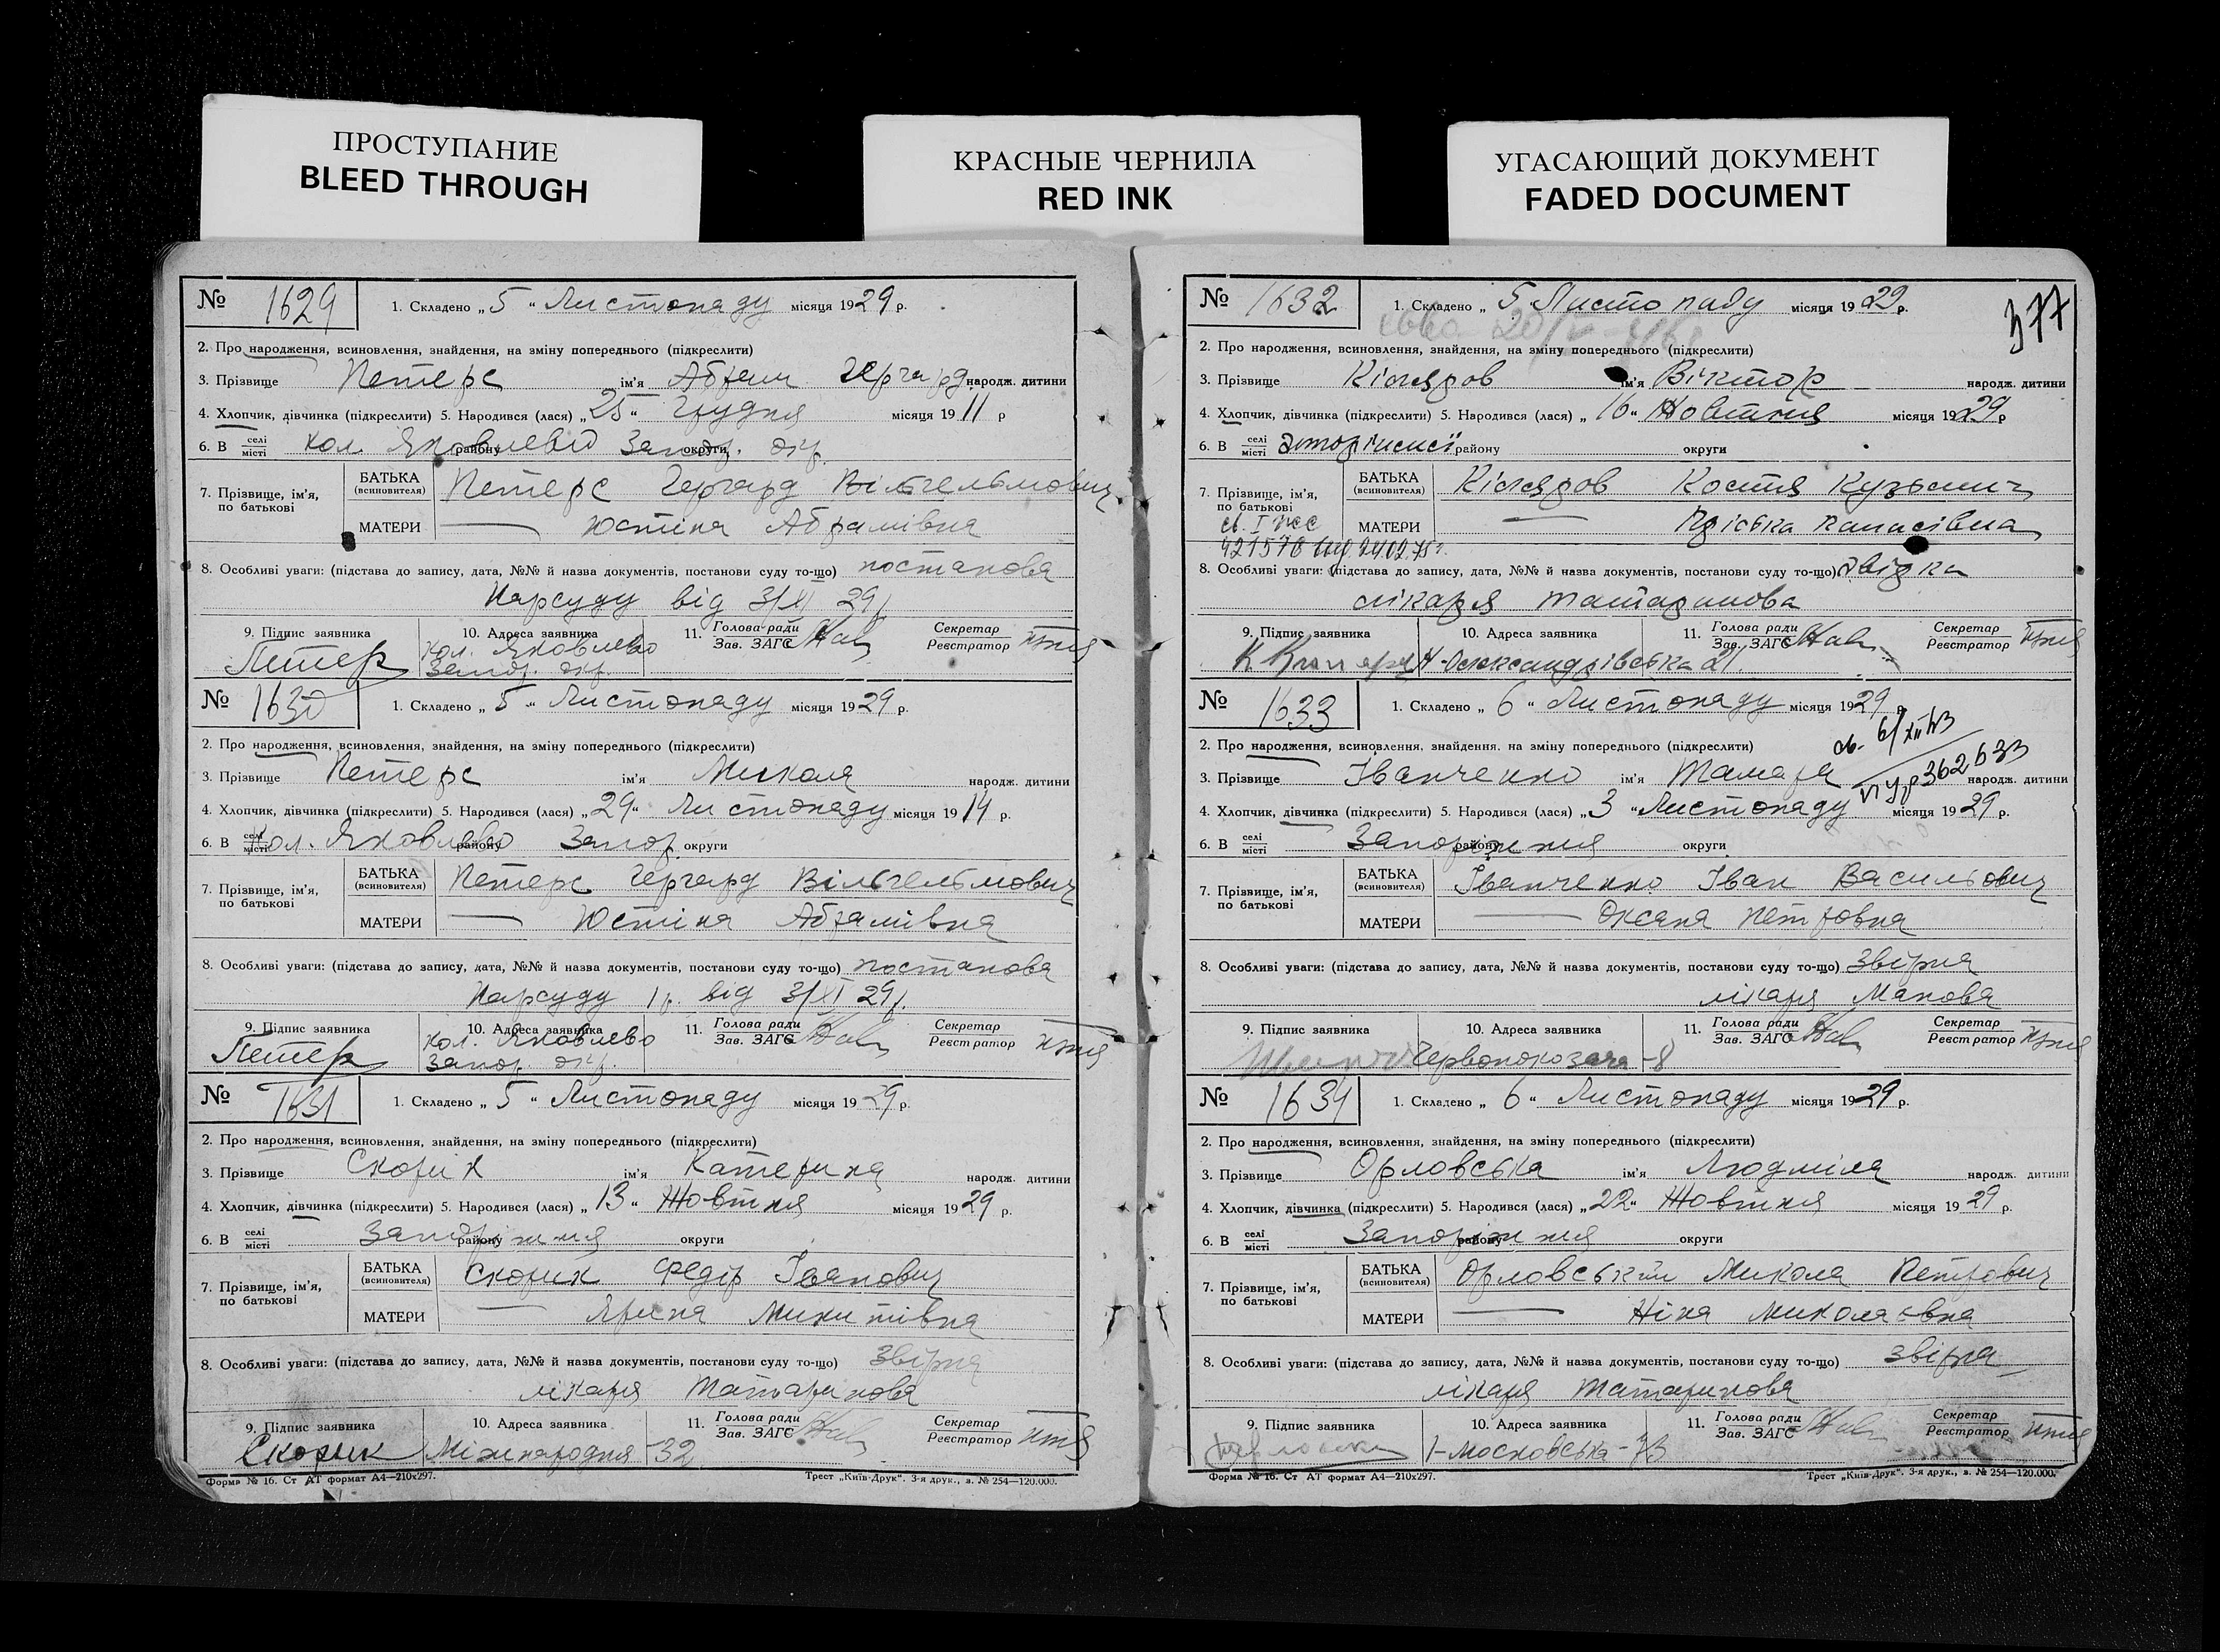 ПРОСТУПАНИЕ
BLEED THROUGH
КРАСНЫЕ ЧЕРНИЛА
RED INK
УГАСАЮЩИЙ ДОКУМЕНТ
FADED DOCUMENT
№ 1629 1. Складено „ 5 “ Листопаду місяця 1929 р.
2. Про народження, всиновлення, знайдення, на зміну попереднього (підкреслити)
3. Прізвище Петерс ім'я Абрам Гергард народж. дитини
4. Хлопчик, дівчинка (підкреслити) 5. Народився (лася) „ 25 “ Грудня місяця 1911 р
6. В селі місті кол. Яковлево району Запор. округи окр.
7. Прізвище, ім'я, по батькові БАТЬКА (всиновителя) Петерс Гергард Вільгельмович
МАТЕРИ — Юстіна Абрамівна
8. Особливі уваги: (підстава до запису, дата, №№ й назва документів, постанови суду то-що) постанова
Нарсуду від 3/XI 29р.
9. Підпис заявника 10. Адреса заявника 11. Голова ради Зав. ЗАГС Секретар Реєстратор
Петерс кол. Яковлево
Запор. окр.
№ 1630 1. Складено „ 5 “ Листопаду місяця 1929 р.
2. Про народження, всиновлення, знайдення, на зміну попереднього (підкреслити)
3. Прізвище Петерс ім'я Микола народж. дитини
4. Хлопчик, дівчинка (підкреслити) 5. Народився (лася) „ 29 “ Листопаду місяця 1914 р.
6. В селі місті Кол. Яковлево району Запор. округи
7. Прізвище, ім'я, по батькові БАТЬКА (всиновителя) Петерс Гергард Вільгельмович
МАТЕРИ — Юстіна Абрамівна
8. Особливі уваги: (підстава до запису, дата, №№ й назва документів, постанови суду то-що) постанова
Нарсуду 1р. від 3/XI 29р.
9. Підпис заявника 10. Адреса заявника 11. Голова ради Зав. ЗАГС Секретар Реєстратор
Петерс кол. Яковлево
Запор. окр.
№ 1631 1. Складено „ 5 “ Листопаду місяця 1929 р.
2. Про народження, всиновлення, знайдення, на зміну попереднього (підкреслити)
3. Прізвище Скорик ім'я Катерина народж. дитини
4. Хлопчик, дівчинка (підкреслити) 5. Народився (лася) „ 13 “ Жовтня місяця 1929 р.
6. В селі місті Запоріжжя району округи
7. Прізвище, ім'я, по батькові БАТЬКА (всиновителя) Скорик Федір Іванович
МАТЕРИ — Ярина Микитівна
8. Особливі уваги: (підстава до запису, дата, №№ й назва документів, постанови суду то-що) Звірка
лікаря Татаринова
9. Підпис заявника 10. Адреса заявника 11. Голова ради Зав. ЗАГС Секретар Реєстратор
Скорик Міжнародня - 32
Форма № 16. Ст АТ формат А4—210х297. Трест „Київ-Друк“. 3-я друк., з. № 254—120.000.
377
№ 1632 1. Складено „ 5 “ Листопаду місяця 1929 р.
2. Про народження, всиновлення, знайдення, на зміну попереднього (підкреслити)
3. Прізвище Кісляров ім'я Віктор народж. дитини
4. Хлопчик, дівчинка (підкреслити) 5. Народився (лася) „ 16 “ Жовтня місяця 1929 р
6. В селі місті району округи
7. Прізвище, ім'я, по батькові БАТЬКА (всиновителя) Кісляров Костя Кузьмич
МАТЕРИ — Пріська Панасівна
421576 24.02.75г.
8. Особливі уваги: (підстава до запису, дата, №№ й назва документів, постанови суду то-що) звірка
лікаря Татаринова
9. Підпис заявника 10. Адреса заявника 11. Голова ради Зав. ЗАГС Секретар Реєстратор
Олександрівська 21
№ 1633 1. Складено „ 6 “ Листопаду місяця 1929 р
св. 6/XII 43
362633
2. Про народження, всиновлення, знайдення, на зміну попереднього (підкреслити)
3. Прізвище Іванченко ім'я Тамара народж. дитини
4. Хлопчик, дівчинка (підкреслити) 5. Народився (лася) „ 3 “ Листопаду місяця 1929 р.
6. В селі місті Запоріжжя району округи
7. Прізвище, ім'я, по батькові БАТЬКА (всиновителя) Іванченко Іван Васильович
МАТЕРИ — Оксана Петровна
8. Особливі уваги: (підстава до запису, дата, №№ й назва документів, постанови суду то-що) Звірка
лікаря Макова
9. Підпис заявника 10. Адреса заявника 11. Голова ради Зав. ЗАГС Секретар Реєстратор
Червонокозача - 8
№ 1634 1. Складено „ 6 “ Листопаду місяця 1929 р.
2. Про народження, всиновлення, знайдення, на зміну попереднього (підкреслити)
3. Прізвище Орловська ім'я Людміла народж. дитини
4. Хлопчик, дівчинка (підкреслити) 5. Народився (лася) „ 22 “ Жовтня місяця 1929 р.
6. В селі місті Запоріжжя району округи
7. Прізвище, ім'я, по батькові БАТЬКА (всиновителя) Орловський Микола Петрович
МАТЕРИ — Ніна Миколаєвна
8. Особливі уваги: (підстава до запису, дата, №№ й назва документів, постанови суду то-що) звірка
лікаря Татаринова
9. Підпис заявника 10. Адреса заявника 11. Голова ради Зав. ЗАГС Секретар Реєстратор
1-московська - 73
Форма № 16. Ст АТ формат А4—210х297. Трест „Київ-Друк“. 3-я друк., з. № 254—120.000.